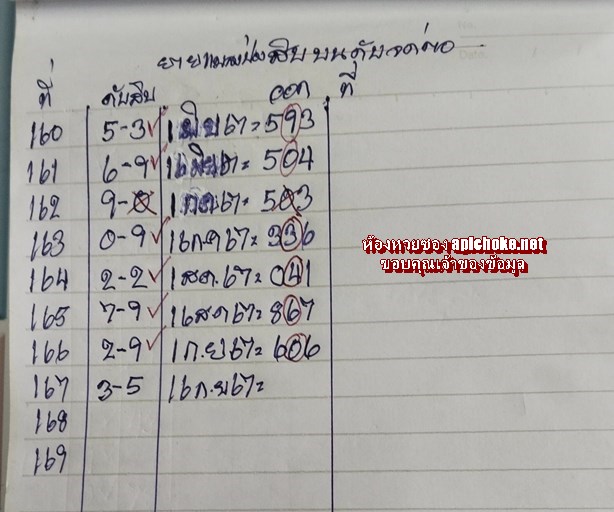 สิบบนดับจดต่อ
ที่ ดับสิบ ออก ที่
160 5-3 1 มิย 67= 593
161 6-9 16 มิย 67= 504
162 9-0 1 กค 67= 503
163 0-9 16 ก.ค 67= 936
164 2-2 1 สค. 67= 041
165 7-9 16 สค 67= 867
166 2-9 1 ก.ย 67= 606
167 3-5 16 ก.ย 67=
168
169
ห้องหวยซอง apichoke.net
ขอบคุณเจ้าของข้อมูล